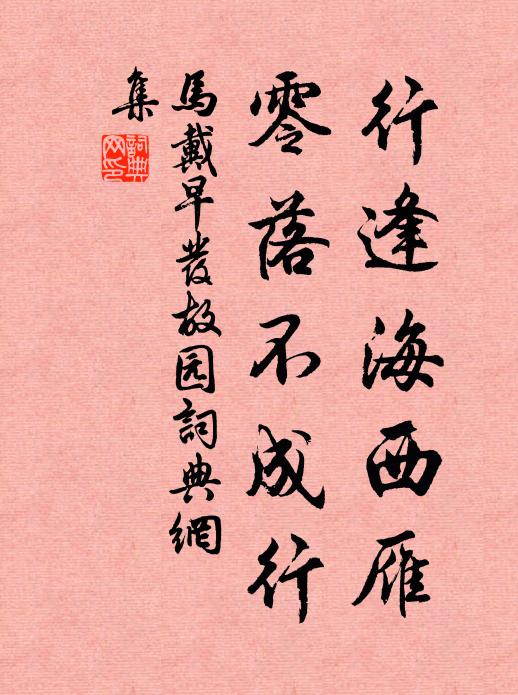 行逢海西雁
零落不成行
馬戴早發故园詞典網
集
詞典网印